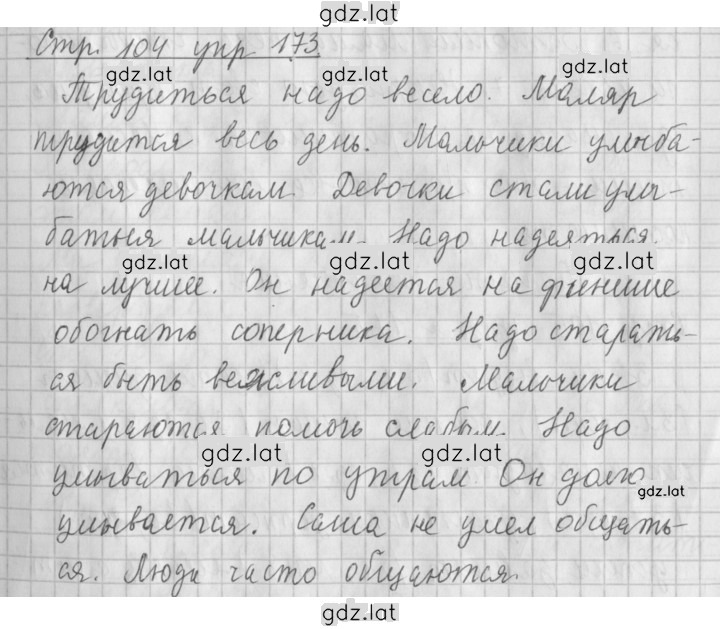 gdz.lat
Стр. 104 упр 173
gdz.lat gdz.lat
Трудиться надо весело. Маляр
трудится весь день. Мальчики улыба-
ются девочкам. Девочки стали улы-
баться мальчикам. Надо надеяться
gdz.lat gdz.lat
на лучшее. Он надеется на финише
обогнать соперника. Надо старать-
ся быть вежливыми. Мальчики
стараются помочь слабым. Надо
gdz.lat gdz.lat
умываться по утрам. Он долго
gdz.lat
умывается. Саша не умел общать-
ся. Люди часто общаются.
gdz.lat